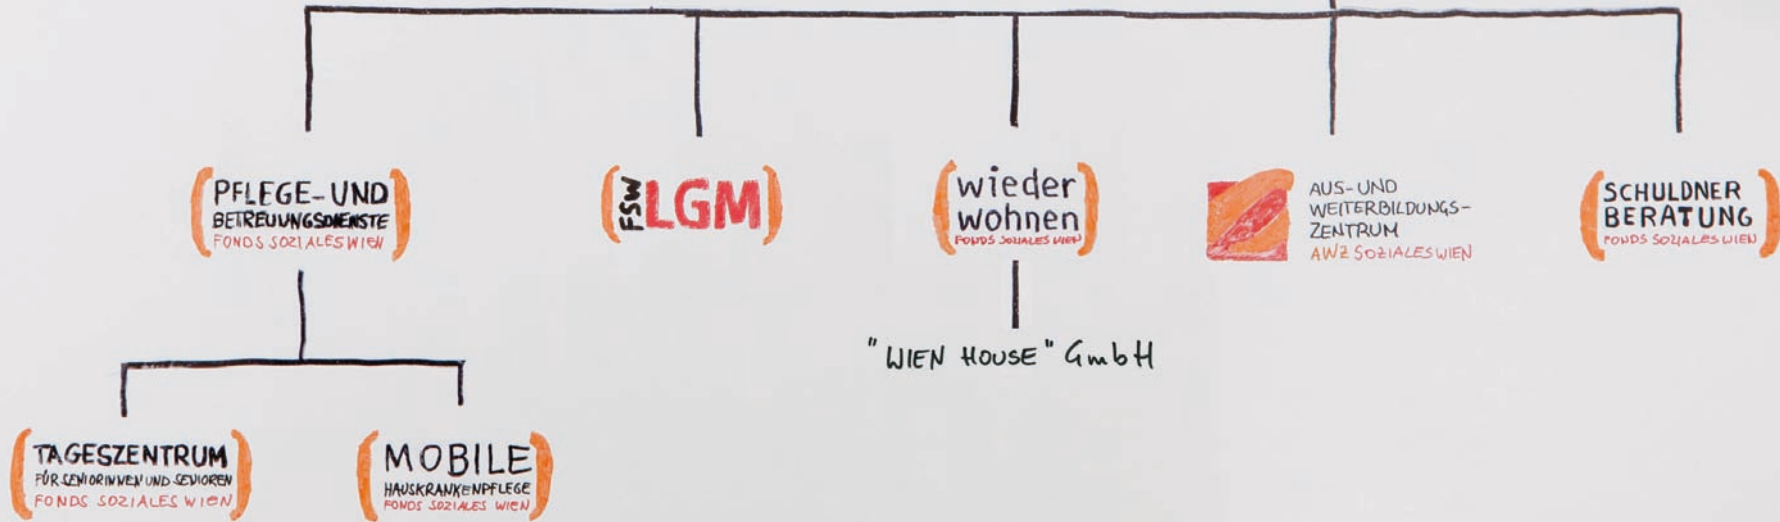 PFLEGE-UND
BETREUUNGSDIENSTE
FONDS SOZIALES WIEN
FSW LGM
wieder
wohnen
FONDS SOZIALES WIEN
AUS-UND
WEITERBILDUNGS-
ZENTRUM
AWZ SOZIALES WIEN
SCHULDNER
BERATUNG
FONDS SOZIALES WIEN
"WIEN HOUSE" GmbH
TAGESZENTRUM
FÜR SENIORINNEN UND SENIOREN
FONDS SOZIALES WIEN
MOBILE
HAUSKRANKENPFLEGE
FONDS SOZIALES WIEN